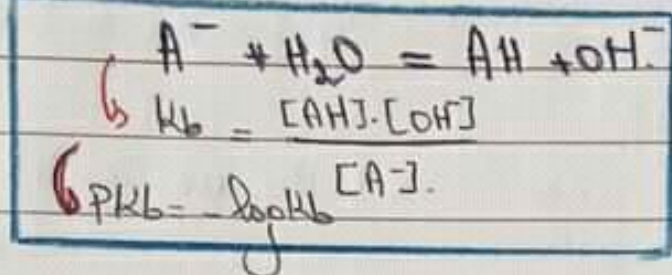 A⁻ + H₂O = AH + OH⁻
Kb = [AH].[OH⁻]
[A⁻].
PKb = -logKb